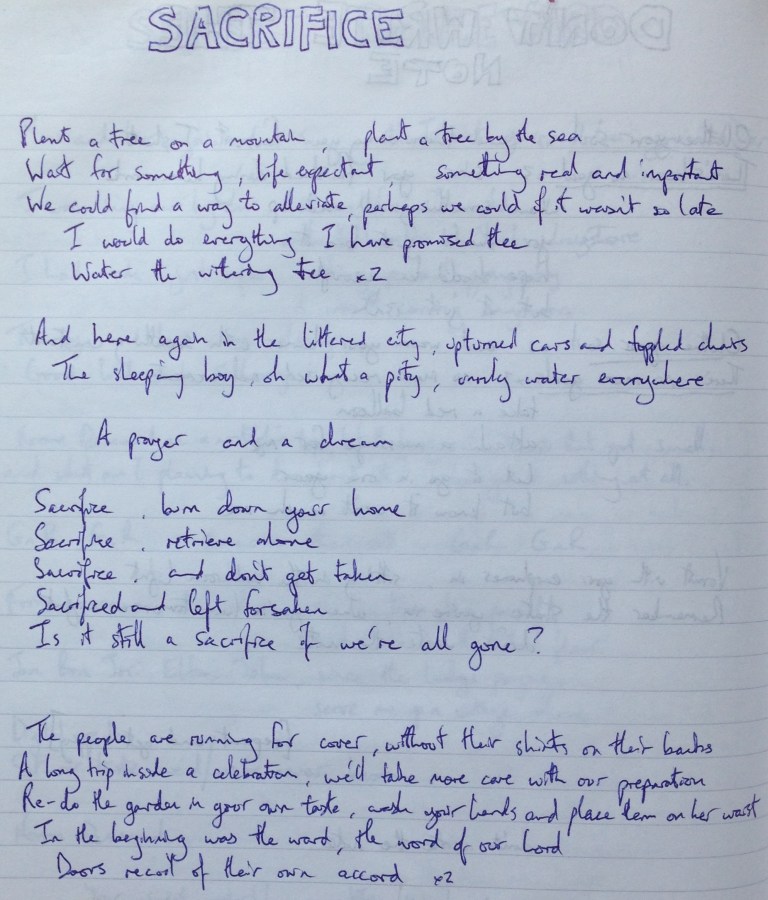 SACRIFICE
Plant a tree on a mountain, plant a tree by the sea
Wait for something, life expectant, something real and important
We could find a way to alleviate, perhaps we could if it wasn't so late
I would do everything I have promised thee
Water the withering tree x2
And here again in the littered city, upturned cars and toppled chairs
The sleeping boy, oh what a pity, unruly water everywhere
A prayer and a dream
Sacrifice, burn down your home
Sacrifice, retrieve alone
Sacrifice, and don't get taken
Sacrificed and left forsaken
Is it still a sacrifice if we're all gone?
The people are running for cover, without their shirts on their backs
A long trip inside a celebration, we'll take more care with our preparation
Re-do the garden in your own taste, wash your hands and place them on her waist
In the beginning was the word, the word of our Lord
Doors recoil of their own accord x2